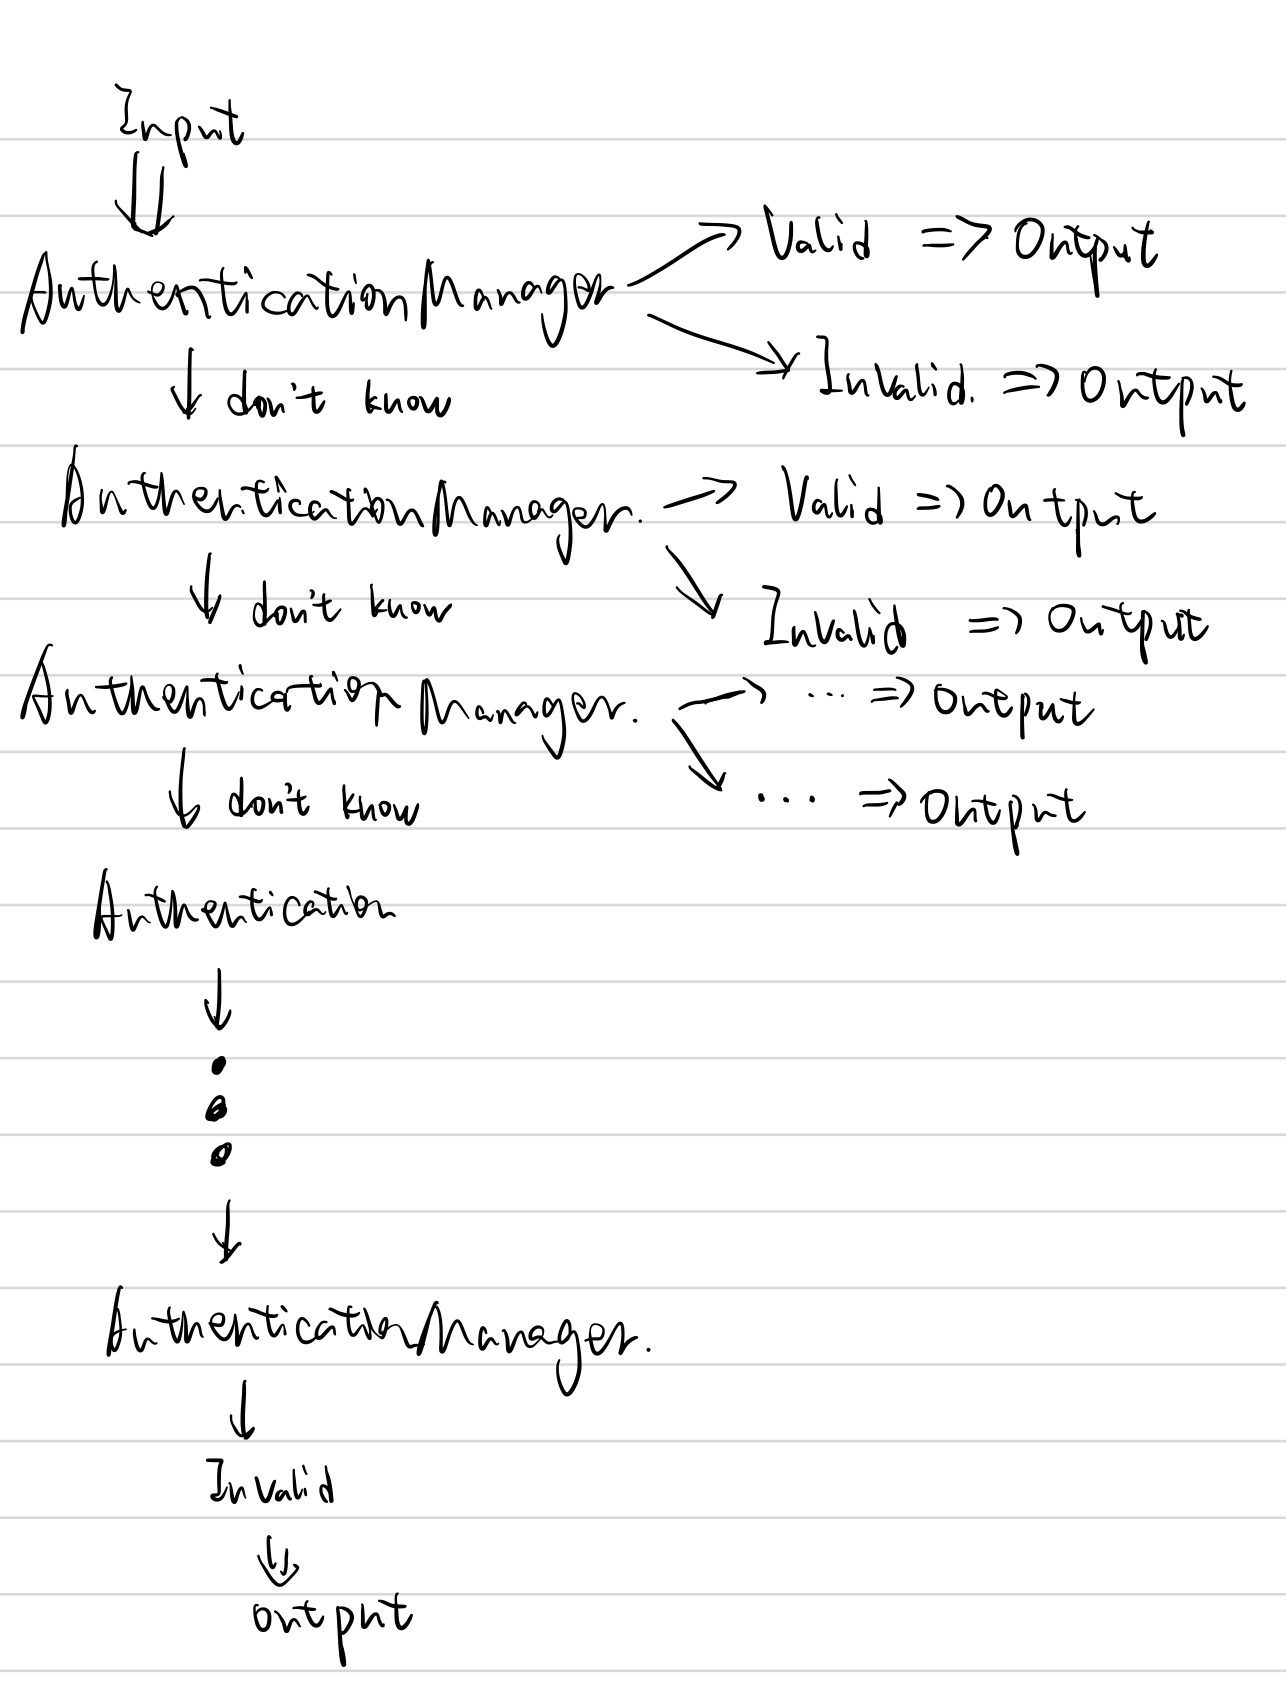 Input
AuthenticationManager → Valid => Output
Invalid. => Output
↓ don't know
AuthenticationManager. → Valid => Output
↓ don't know
Invalid => Output
Authentication Manager. → ... => Output
↓ don't know
... => Output
Authentication
↓
↓
AuthenticationManager.
↓
Invalid
output